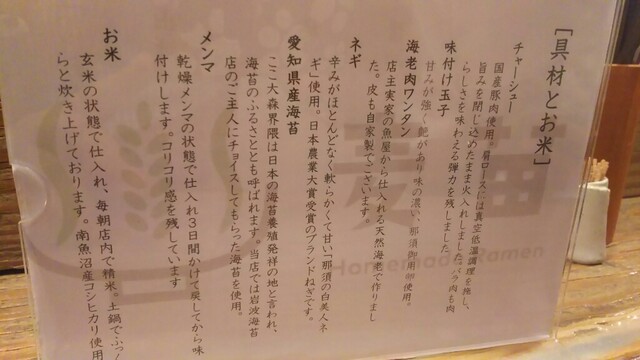 [具材とお米]
チャーシュー
国産豚肉使用。肩ロースには真空低温調理を施し、
旨みを閉じ込めたまま火入れしました。バラ肉も肉
らしさを味わえる弾力を残しました。
味付け玉子
甘みが強く艶があり味の濃い、那須御用卵使用。
海老肉ワンタン
店主実家の魚屋から仕入れる天然海老で作りまし
た。皮も自家製でございます。
ネギ
辛みがほとんどなく軟らかくて甘い「那須の白美人ネ
ギ」使用。日本農業大賞受賞のブランドねぎです。
愛知県産海苔
ここ大森界隈は日本の海苔養殖発祥の地と言われ、
海苔のふるさととも呼ばれます。当店では岩波海苔
店のご主人にチョイスしてもらった海苔を使用。
メンマ
乾燥メンマの状態で仕入れ3日間かけて戻してから味
付けします。コリコリ感を残しています
お米
玄米の状態で仕入れ、毎朝店内で精米。土鍋でふっ
らと炊き上げております。南魚沼産コシヒカリ使用
Homemade Ramen
麦苗